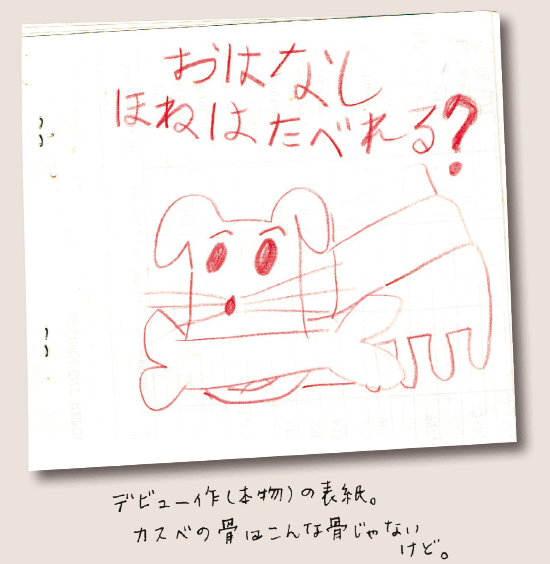 おはなし
ほねはたべれる?
デビュー作(本物)の表紙。
カスベの骨はこんな骨じゃない
けど。